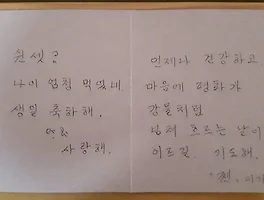 쉰 셋?
나이 엄청 먹었네.
생일 축하해.
사랑해.
언제나 건강하고
마음에 평화가
강물처럼
흐르는 날이
이르길. 기도해.